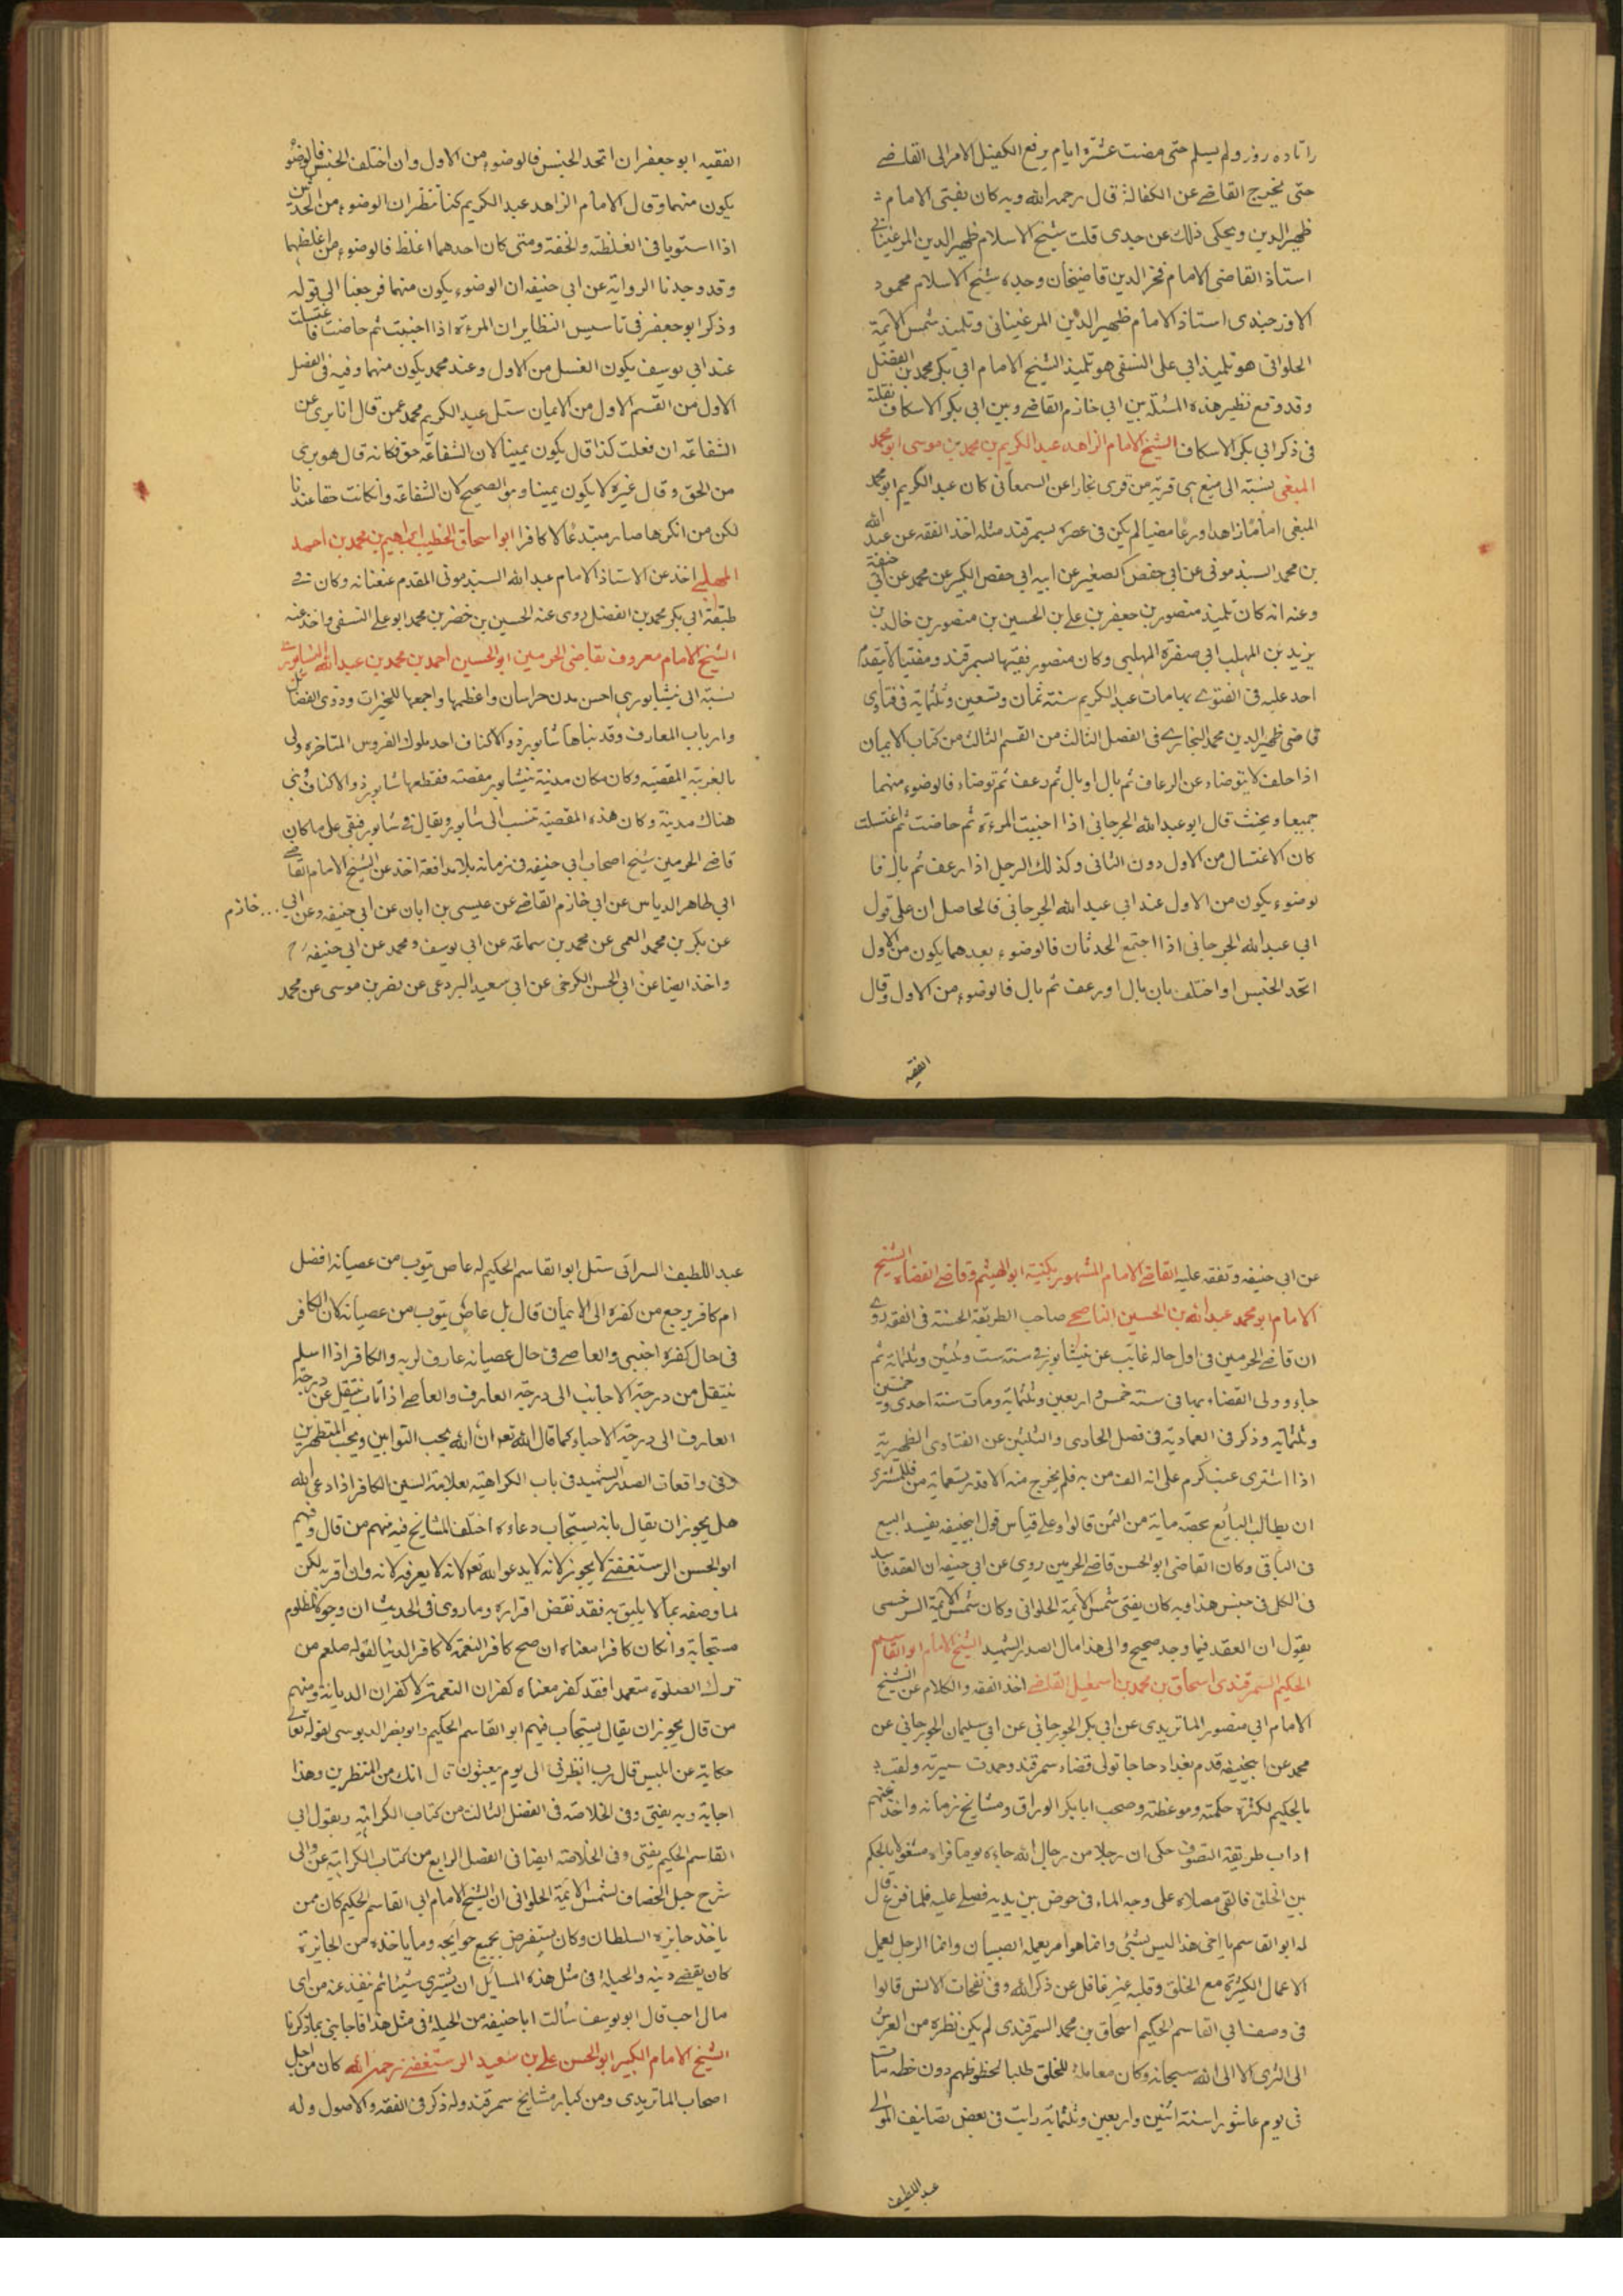 راتاده روز ولم يسلم حتى مضت عشرة ايام يرفع الكفيل الامر الى القاضي
حتى يخرج القاضي عن الكفالة قال رحمه الله وبه كان يفتى الامام
ظهير الدين ويحكى ذلك عن جدى قلت شيخ الاسلام ظهير الدين المرغيناني
استاذ القاضى الامام فخر الدين قاضيخان وجده شيخ الاسلام محمود
الاوزجندى استاذ الامام ظهير الدين المرغينانى وتلميذ شمس الايمة
الحلوانى هو تلميذ ابى على النسفى هو تلميذ الشيخ الامام ابى بكر محمد بن الفضل
وقد وقع نظير هذه المسئلة بين ابى خازم القاضى وبين ابى بكر الاسكاف نقلته
فى ذكر ابى بكر الاسكاف الشيخ الامام الزاهد عبد الكريم بن محمد بن موسى ابو محمد
الميغى نسبته الى ميغ هى قرية من قرى بخارا عن السمعانى كان عبد الكريم ابو محمد
الميغى اماما زاهدا ورعا مضيا لم يكن فى عصره بسمرقند مثله اخذ الفقه عن عبد الله
بن محمد السبذمونى عن ابى حفص الصغير عن ابيه ابى حفص الكبير عن محمد عن ابى حنيفة
وعنه انه كان تلميذ منصور بن جعفر بن على بن الحسين بن منصور بن خالد بن
يزيد بن المهلب ابى صفرة المهلبى وكان منصور فقيها بسمرقند ومفتيا لا يتقدم
احد عليه فى الفتوى بها مات عبد الكريم سنة ثمان وتسعين وثلثماية فى فتاوى
قاضى ظهير الدين محمد البخارى فى الفصل الثالث من القسم الثالث من كتاب الايمان
اذا حلف لا يتوضاء عن الرعاف ثم بال او بال ثم رعف ثم توضاء فالوضوء منهما
جميعا ويحنث قال ابو عبد الله الجرجانى اذا اجنبت المرءة ثم حاضت ثم اغتسلت
كان الاغتسال من الاول دون الثانى وكذلك الرجل اذا رعف ثم بال فا
لوضوء يكون من الاول عند ابى عبد الله الجرجانى فالحاصل ان على قول
ابى عبد الله الجرجانى اذا اجتمع الحدثان فالوضوء بعدهما يكون من الاول
اتحد الجنس او اختلف بان بال او رعف ثم بال فالوضوء من الاول وقال
الفقيه
الفقيه ابو جعفر ان اتحد الجنس فالوضوء من الاول وان اختلف الجنس فالوضو
يكون منهما وقال الامام الزاهد عبد الكريم كنا نظران الوضوء من الحدثين
اذا استويا فى الغلظة والخفة ومتى كان احدهما اغلظ فالوضوء من اغلظهما
وقد وجدنا الرواية عن ابى حنيفه ان الوضوء يكون منهما فرجعنا الى قوله
وذكر ابو جعفر فى تاسيس النظاير ان المرءة اذا اجنبت ثم حاضت فاغتسلت
عند ابى يوسف يكون الغسل من الاول وعند محمد يكون منهما وفيه فى الفصل
الاول من القسم الاول من الايمان سئل عبد الكريم محمد عمن قال انا برى عن
الشفاعة ان فعلت كذا قال يكون يمينا لان الشفاعة حق فكانه قال هو برى
من الحق وقال غيره لا يكون يمينا وهو الصحيح لان الشفاعة وانكانت حقا عندنا
لكن من انكرها صار مبتدعا لا كافرا ابو اسحاق الخطيب ابراهيم بن محمد بن احمد
المهلبى اخذ عن الاستاذ الامام عبد الله السبذمونى المقدم عنعنانه وكان فى
طبقة ابى بكر محمد بن الفضل روى عنه الحسين بن خضر بن محمد ابو على النسفى واخذ عنه
الشيخ الامام معروف بقاضى الحرمين ابو الحسين احمد بن محمد بن عبد الله النيسابورى
نسبته الى نيشابورى احسن مدن خراسان واعظمها واجمعها للخيرات وذوى الفضائل
وارباب المعارف وقد بناها شابور ذو الاكتاف احد ملوك الفروس المتاخره ولى
بالغربيه المقصبه وكان مكان مدينة نيشابور مقصبة فقطعها شابور ذو الاكتاف بنى
هناك مدينة وكان هذه المقصبة تنسب الى شابور ويقال فى شابور فبقى على ما كان
قاضى الحرمين شيخ اصحاب ابى حنيفه فى زمانه بلا مدافعة اخذ عن الشيخ الامام القاضى
ابى طاهر الدباس عن ابى خازم القاضى عن عيسى بن ابان عن ابى حنيفه وعن ابى ... خازم
عن بكر بن محمد العمى عن محمد بن سماعة عن ابى يوسف ومحمد عن ابى حنيفه
واخذ ايضا عن ابى الحسن الكرخى عن ابى سعيد البردعى عن نصر بن موسى عن محمد
عن ابى حنيفه وتفقه عليه القاضى الامام المشهور بكنيته ابو الهيثم وقاضى القضاه الشيخ
الامام ابو محمد عبد الله بن الحسين الناصحى صاحب الطريقة الحسنة فى الفقه روى
ان قاضى الحرمين فى اول حاله غايب عن نيشابور فى سنة ست وثلثين وثلثماية ثم
جاء وولى القضاء بها فى سنة خمس واربعين وثلثماية ومات سنة احدى وخمسين
وثلثمايه وذكر فى العماديه فى فصل الحادى والثلثين عن الفتاوى الظهيرية
اذا اشترى عنب كرم على انه الف من به فلم يخرج منه الا قدر تسعماية من فللمشترى
ان يطالب البايع بحصة ماية من الثمن قالوا وعلى قياس قول ابيحنيفه يفسد البيع
فى الباقى وكان القاضى ابو الحسن قاضى الحرمين روى عن ابى حنيفه ان العقد فاسد
فى الكل فى جنس هذا وبه كان يفتى شمس الايمة الحلوانى وكان شمس الايمة السرخسى
يقول ان العقد فيما وجد صحيح والى هذا مال الصدر الشهيد الشيخ الامام ابو القاسم
الحكيم السمرقندى اسحاق بن محمد بن اسمعيل القاضى اخذ الفقه والكلام عن الشيخ
الامام ابى منصور الماتريدى عن ابى بكر الجوزجانى عن ابى سليمان الجوزجانى عن
محمد عن ابيحنيفه قدم بغداد حاجا تولى قضاء سمرقند وحمدت سيرته ولقب
بالحكيم لكثرة حكمته وموعظته وصحب ابا بكر الوراق ومشايخ زمانه واخذ عنهم
اداب طريقة التصوف حكى ان رجلا من رجال الله جاءه يوما فراه مشغولا بالحكم
بين الخلق فالقى مصلاه على وجه الماء فى حوض بين يديه فصلى عليه فلما فرغ قال
له ابو القاسم يا اخى هذا ليس بشئى وانما هو امر يعمله الصبيان وانما الرجل يعمل
الاعمال الكثيرة مع الخلق وقلبه غير غافل عن ذكر الله وفى نفحات الانس قالوا
فى وصف ابى القاسم الحكيم اسحاق بن محمد السمرقندى لم يكن نظره من العرش
الى الثرى الا الى الله سبحانه وكان معاملة للخلق طلبا لحظوظهم دون حظه مات
فى يوم عاشورا سنة اثنين واربعين وثلثماية رايت فى بعض تصانيف المولى
عبد اللطيف
عبد اللطيف السرائى سئل ابو القاسم الحكيم له عاص يتوب من عصيانه افضل
ام كافر يرجع من كفره الى الايمان قال بل عاص يتوب من عصيانه لان الكافر
فى حال كفره اجنبى والعاصى فى حال عصيانه عارف لربه والكافر اذا اسلم
ينتقل من درجة الاجانب الى درجة العارف والعاصى اذا تاب ينتقل عن درجة
العارف الى درجة الاحباء كما قال الله تعو ان الله يحب التوابين ويحب المتطهرين
وفى واقعات الصدر الشهيد فى باب الكراهية بعلامة السين الكافر اذا دعى الله
هل يجوز ان يقال بانه يستجاب دعاءه اختلف المشايخ فيه منهم من قال وفيهم
ابو الحسن الرستغفنى لا يجوز لانه لا يدعو الله تعو لانه لا يعرفه لانه وان اقر به لكن
لما وصفه بما لا يليق به فقد نقض اقراره وما روى فى الحديث ان دعوة المظلوم
مستجابة وانكان كافرا معناه ان صح كافر النعمة لا كافر الدنيا لقوله صلعم من
ترك الصلوة متعمدا فقد كفر معناه كفران النعمة لا كفران الديانة ومنهم
من قال يجوز ان يقال يستجاب فيهم ابو القاسم الحكيم وابو نصر الدبوسى لقوله تعالى
حكاية عن ابليس قال رب انظرنى الى يوم يبعثون قال انك من المنظرين وهذا
اجابة وبه يفتى وفى الخلاصه فى الفصل الثالث من كتاب الكراهية وبقول ابى
القاسم الحكيم يفتى وفى الخلاصة ايضا فى الفصل الرابع من كتاب الكراهية عن والى
شرح حيل الخصاف لشمس الائمة الحلوانى ان الشيخ الامام ابى القاسم الحكيم كان ممن
ياخذ جايزه السلطان وكان يستقرض بجميع حوايجه وما ياخذه من الجايزة
كان يقضى دينه والحيلة فى مثل هذه المسايل ان يشترى شيئا ثم ينفد عنه من اى
مال احب قال ابو يوسف سالت ابا حنيفه من الحيلة فى مثل هذا فاجابنى بما ذكرنا
الشيخ الامام الكبير ابو الحسن على بن سعيد الرستغفنى رحمه الله كان من اجل
اصحاب الماتريدى ومن كبار مشايخ سمرقند وله ذكر فى الفقه والاصول وله